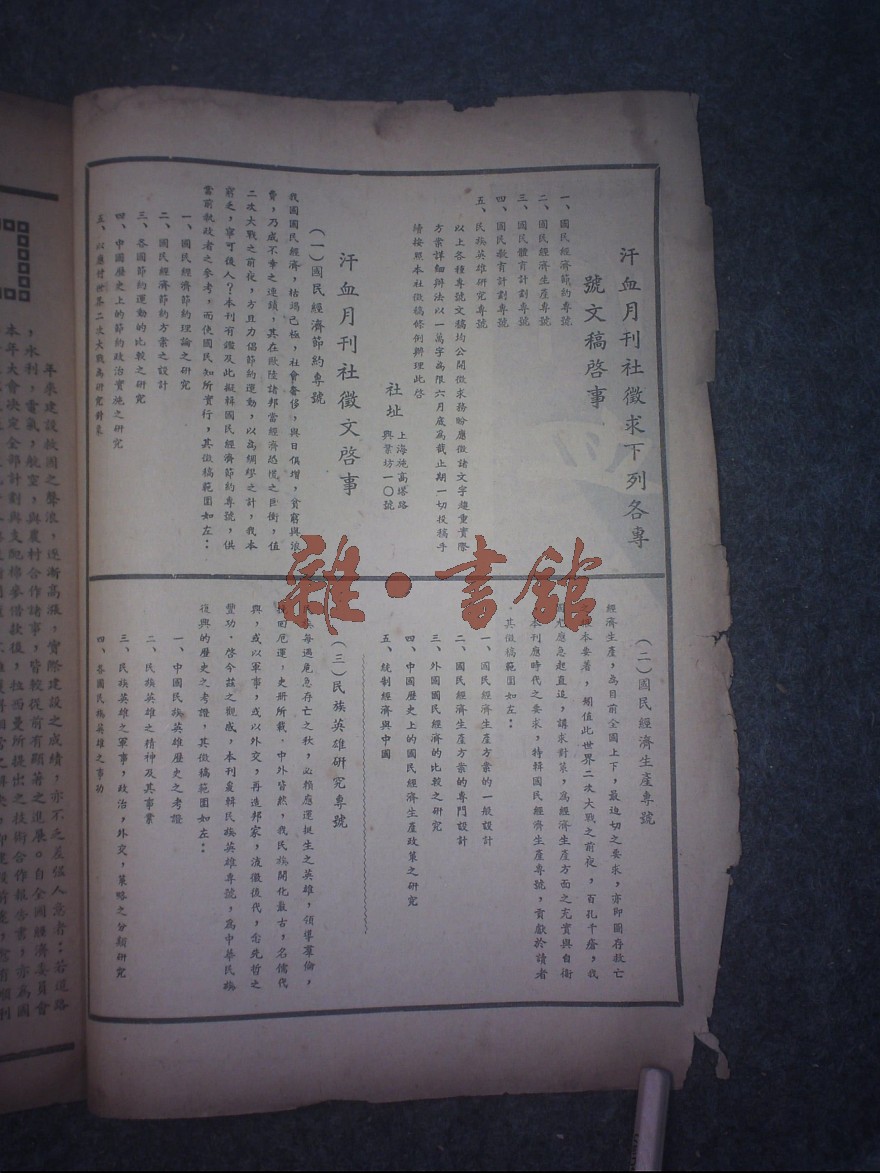 汗血月刊社徵求下列各專
號文稿啓事
一、國民經濟節約專號
二、國民經濟生產專號
三、國民體育計劃專號
四、國民教育計劃專號
五、民族英雄研究專號
以上各種專號文稿均公開徵求務盼應徵諸文字趨重實際
方案詳細辦法以一萬字為限六月底為截止期一切投稿手
續按照本社徵稿條例辦理此啓
社址
上海施高塔路
興業坊一〇號
汗血月刊社徵文啓事
(一)國民經濟節約專號
我國國民經濟,枯竭已極,社會奢侈,與日俱增,貧窮與浪
費,乃成不幸之連鎖,其在歐陸諸邦當經濟恐慌之巨衝,值
二次大戰之前夜,方且力倡節約運動,以為綢繆之計,我本
窮乏,寧可後人?本刊有鑑及此擬輯國民經濟節約專號,供
當前執政者之參考,而使國民知所實行,其徵稿範圍如左:
一、國民經濟節約理論之研究
二、國民經濟節約方案之設計
三、各國節約運動的比較之研究
四、中國歷史上的節約政治實施之研究
五、以應付世界二次大戰為研究對象
(二)國民經濟生產專號
經濟生產,為目前全國上下,最迫切之要求,亦即圖存救亡
本要著,頻值此世界二次大戰之前夜,百孔千瘡,我
尤應急起直追,講求對策,為經濟生產方面之充實與自衛
本刊應時代之要求,特輯國民經濟生產專號,貢獻於讀者
,其徵稿範圍如左:
一、國民經濟生產方案的一般設計
二、國民經濟生產方案的專門設計
三、外國國民經濟的比較之研究
四、中國歷史上的國民經濟生產政策之研究
五、統制經濟與中國
(三)民族英雄研究專號
每遇危急存亡之秋,必賴應運挺生之英雄,領導羣倫,
挽回厄運,史册所載,中外皆然,我民族開化最古,名儒代
興,或以軍事,或以外交,再造邦家,流徽後代,崇先哲之
豐功,啓今茲之觀感,本刊爰輯民族英雄專號,為中華民族
復興的歷史之考證,其徵稿範圍如左:
一、中國民族英雄歷史之考證
二、民族英雄之精神及其事業
三、民族英雄之軍事,政治,外交,策略之分類研究
四、各國民族英雄之事功
年來建設救國之聲浪,逐漸高漲,實際建設之成績,亦不乏差强人意者:若道路
,水利,電氣,航空,與農村合作諸事,皆較從前有顯著之進展。自全國經濟委員會
本年大會決定全部計劃與支配棉麥借款後,拉西曼所提出之技術合作報告書,亦為國
雜·書館